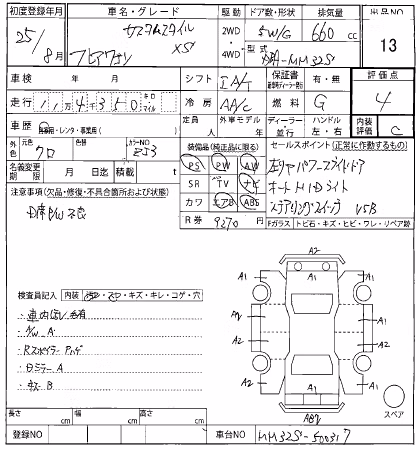 初度登録年月 車名・グレード 駆動 ドア数・形状 排気量 出品NO
25年 カスタムスタイル XS 2WD 5W/G 660 cc 13
8月 フレアワゴン 4WD 型式 MM32S
車検 年 月 シフト IA/T 保証書 有・無 評価点
走行 114350 キロ マイル 冷房 AA/C 燃料 G 4
車歴 自家用・レンタ・事業用( ) 定員 人 外車モデル 年 ディーラー 並行 ハンドル 左・右 内装評価 C
外元色 クロ カラーNO ZJ3 装備品(純正品に限る) セールスポイント(正常に作動するもの)
名義変更期限 月 日 積載 t PS PW AW 左リヤパワースライドドア
注意事項(欠品・修復・不具合箇所および状態) SR TV ナビ オートHIDライト
カワ エアB ABS ステアリングスイッチ USB
R券 9270 円 Fガラス トビ石・キズ・ヒビ・ワレ・リペア跡
A2
A1 A1
検査員記入 内装 ヨゴレ・スレ・キズ・キレ・コゲ・穴
A2 A1
・A/W A
・Rスポイラー
・Dミラー A
A2 A2
A1 A1
スペア
長さ cm 幅 cm 高さ cm
登録NO 車台NO MM32S-500317